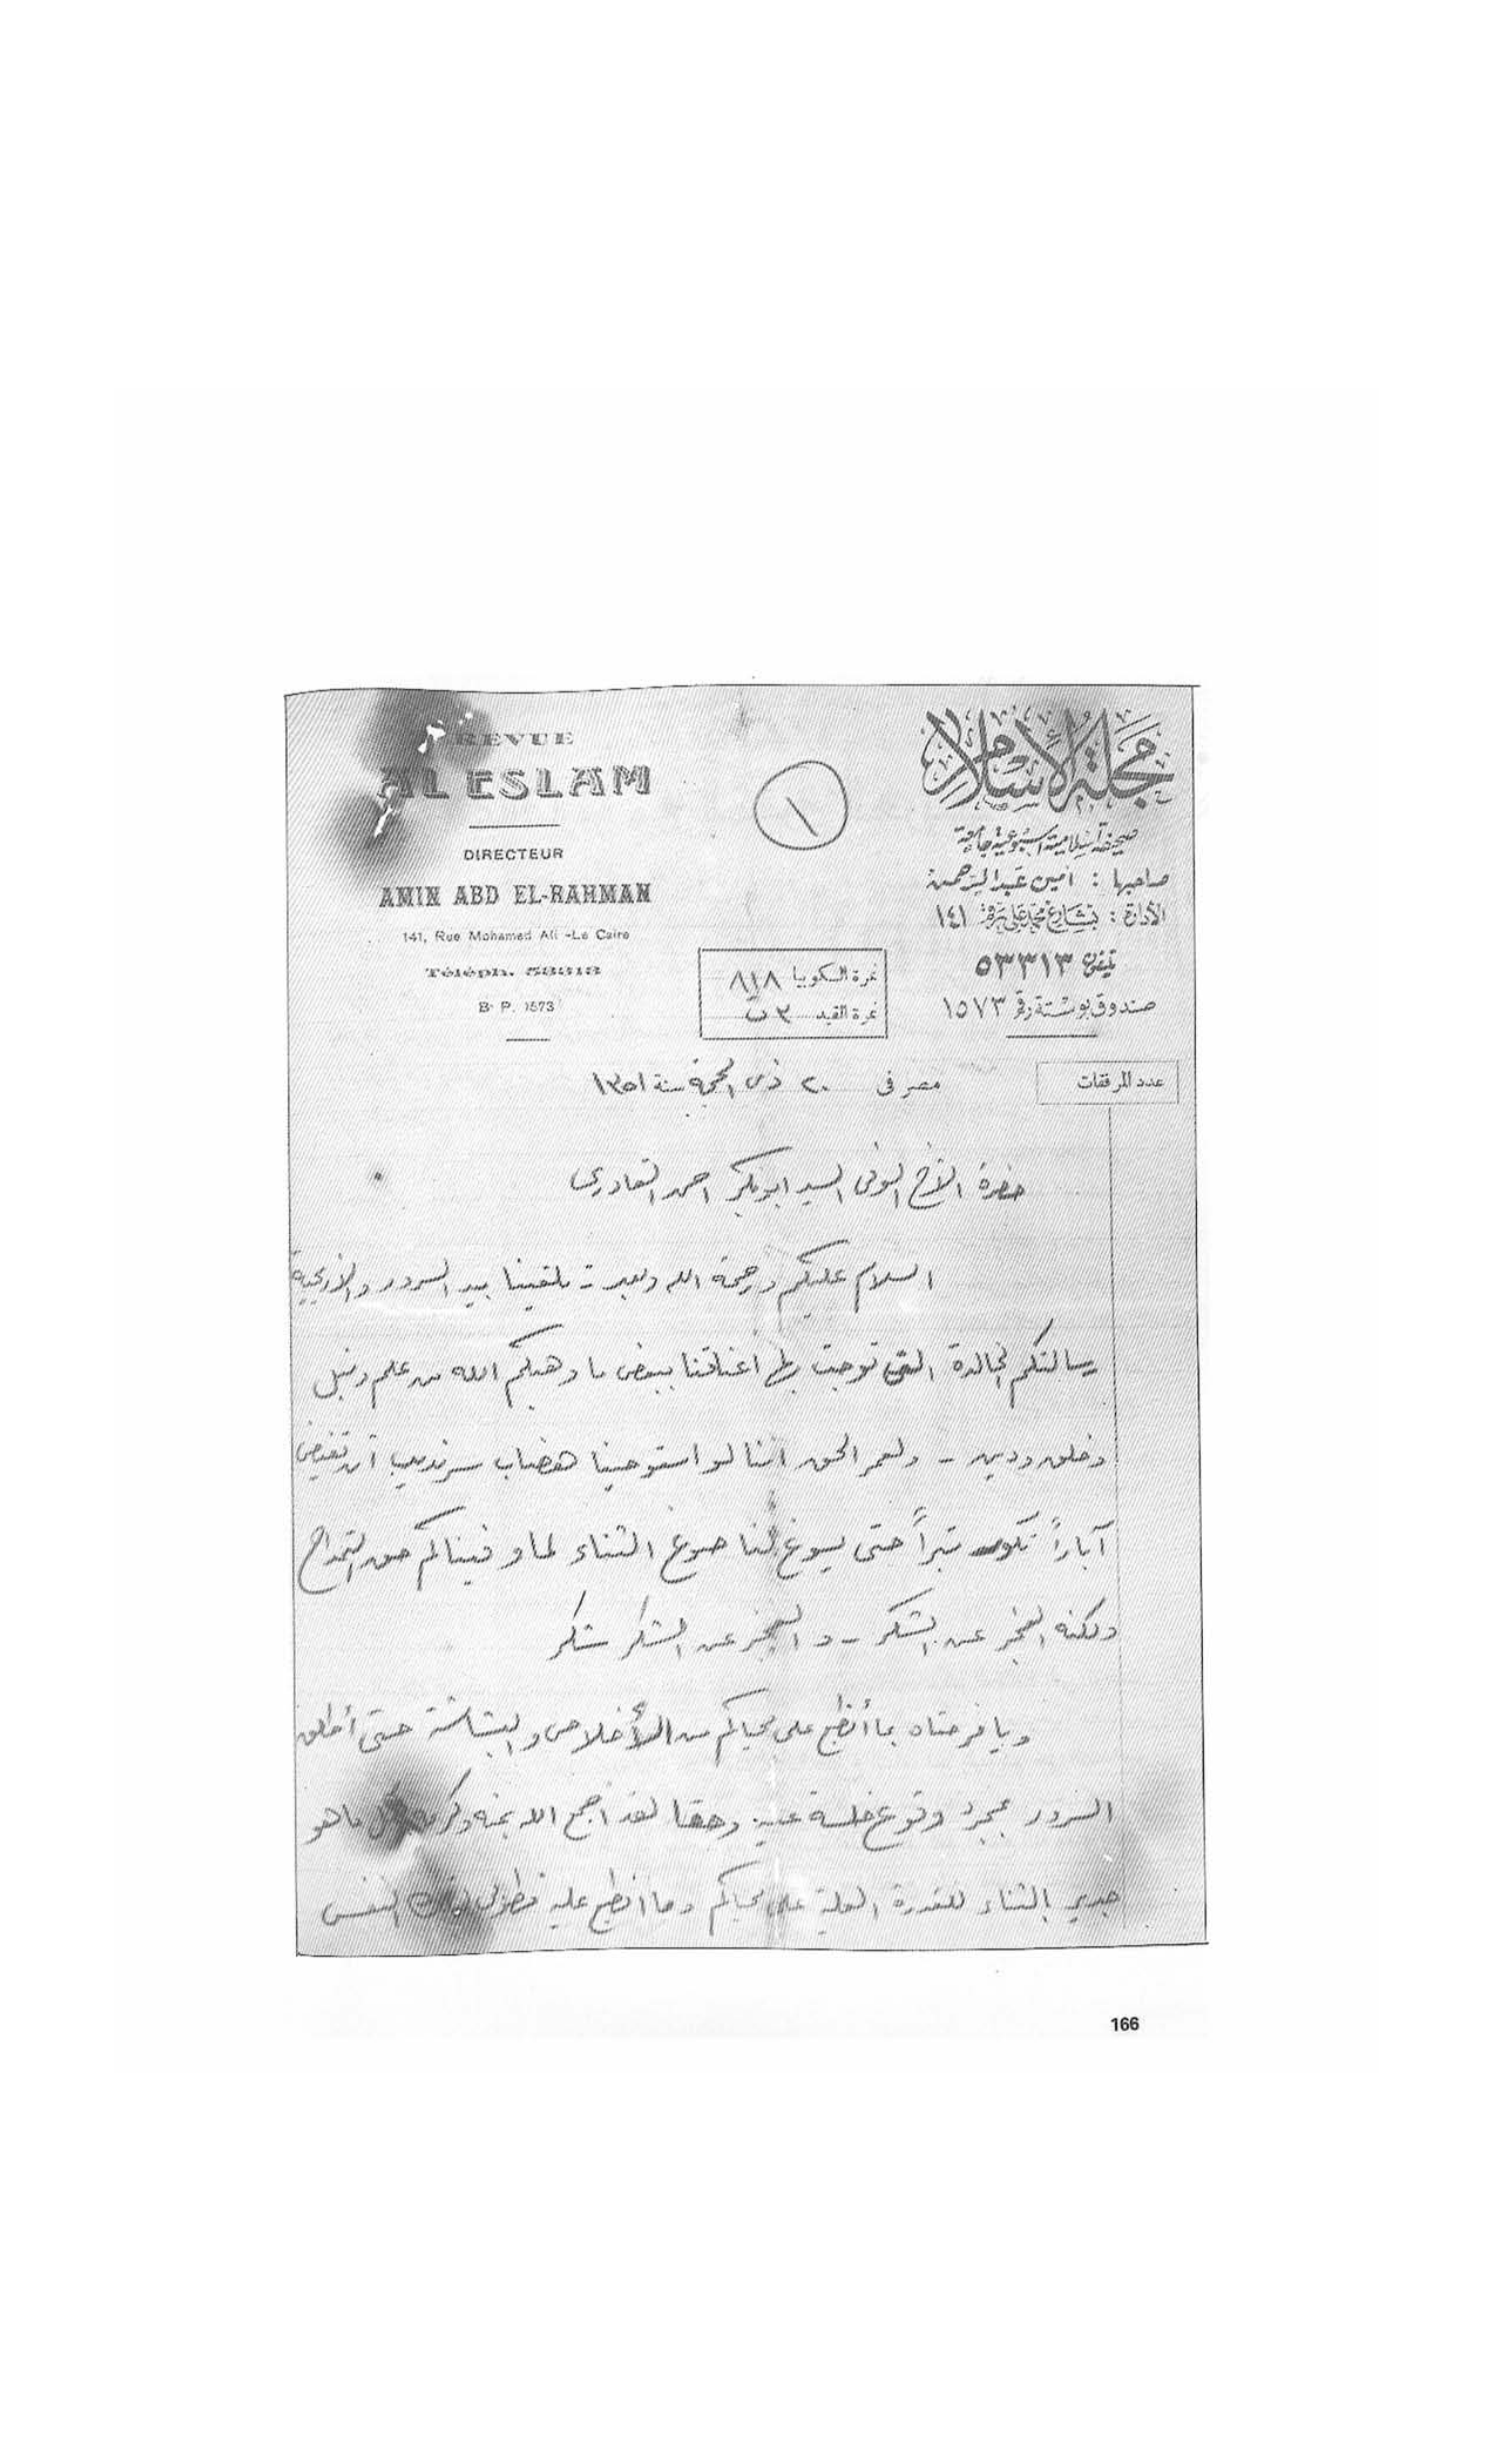 REVUE
AL ESLAM
DIRECTEUR
AMIN ABD EL-RAHMAN
141, Rue Mohamed Ali -Le Caire
Téléph. 53313
B. P. 1573
١
مجلة الإسلام
صحيفة إسلامية أسبوعية جامعة
صاحبها : أمين عبد الرحمن
الأدارة : بشارع محمد علي نمرة ١٤١
تليفون ٥٣٣١٣
صندوق بوستة رقم ١٥٧٣
نمرة الكوبيا ٨١٨
نمرة القيد ٣ ت
عدد المرفقات
مصر فى ٢٠ ذى الحجة سنة ١٣٥١
حضرة الأخ الوفى السيد ابو بكر احمد القادرى
السلام عليكم ورحمة الله وبعد - تلقينا بيد السرور والأريحية
رسالتكم الخالدة التى توجت بها اعناقنا ببعض ما وهبكم الله من علم ونبل
وخلق ودين - ولعمر الحق اننا لو استوحينا هضاب سرنديب أن تفيض
آباراً تكون تبراً حتى يسوغ لنا صوغ الثناء لما وفيناكم حق
ولكنه العجز عن الشكر - و العجز عن الشكر شكر
ويا فرحتاه بما أنطبع على محياكم من الأخلاص والبشاشة حتى
السرور بمجرد وقوع خلسة عين وحقا لقد اجمع الله بمنه وكرمه كل ما هو
جدير بالثناء للقدرة العلية على محياكم وما انطبع عليه النفس
166